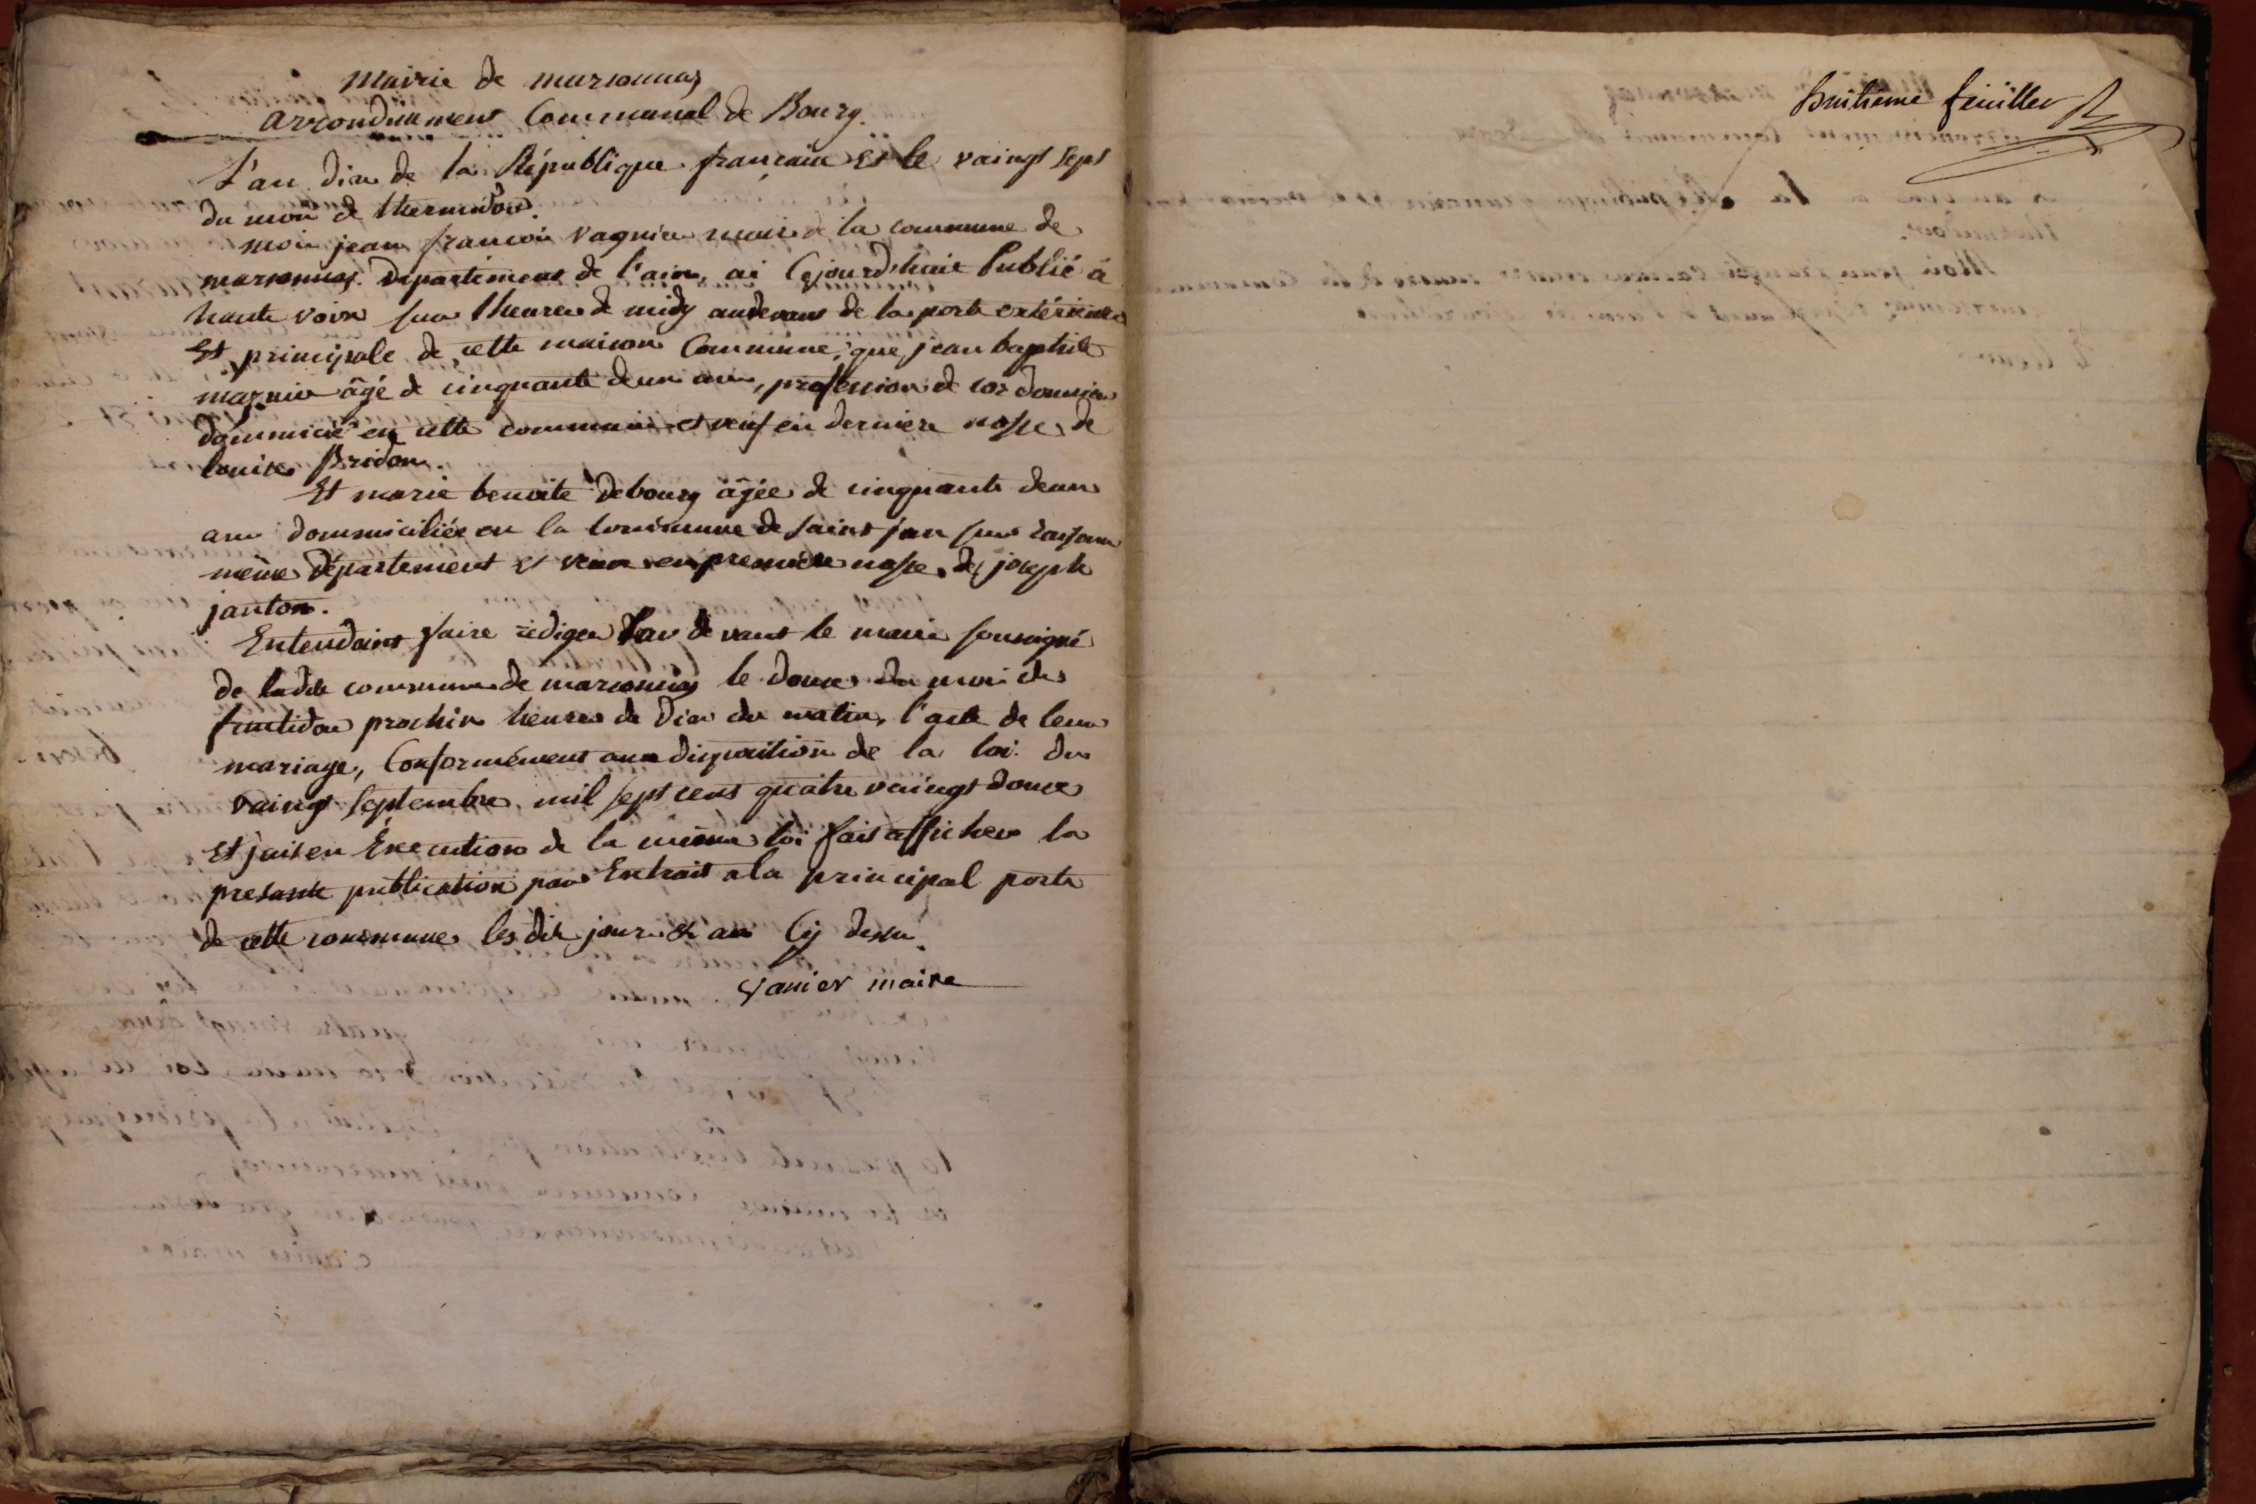 Mairie de marsonnas
arrondissement Communal de Bourg.
L'an dix de la République française Et le vaingt sept
du mois de thermidor.
moi jean françois vagnier maire de la commune de
marsonnas département de l'ain, ai Cejourdhuit Publié à
haute voix sur l'heure de midy audevant de la porte extérieure
Et principale de cette maison Commune, que jean baptiste
magnier âgé de cinquante deux ans, profession de cordonnier
dommicié en cette commune et veuf en derniere nosse de
louise Bridon.
Et marie benoite debourg âgée de cinquante deux
ans dommiciliée en la Commune de saint jean sur
même département et veuve en premiere nosse de joseph
janton.
Entendant faire rédiger Par devant le maire sousigné
de ladite commune de marsonnas le douze du mois de
fructidor prochin heures de dix du matin, l'acte de leur
mariage, Conformément aux disposition de la loi du
vaingt septembre mil sept cens quatre vaingt douze
Et j'ait en Exécution de la même loi fait afficher la
presante publication par Extrait a la principal porte
de cette commune les dit jour & an Cy dessu.
vanier maire
Huitieme feuillet